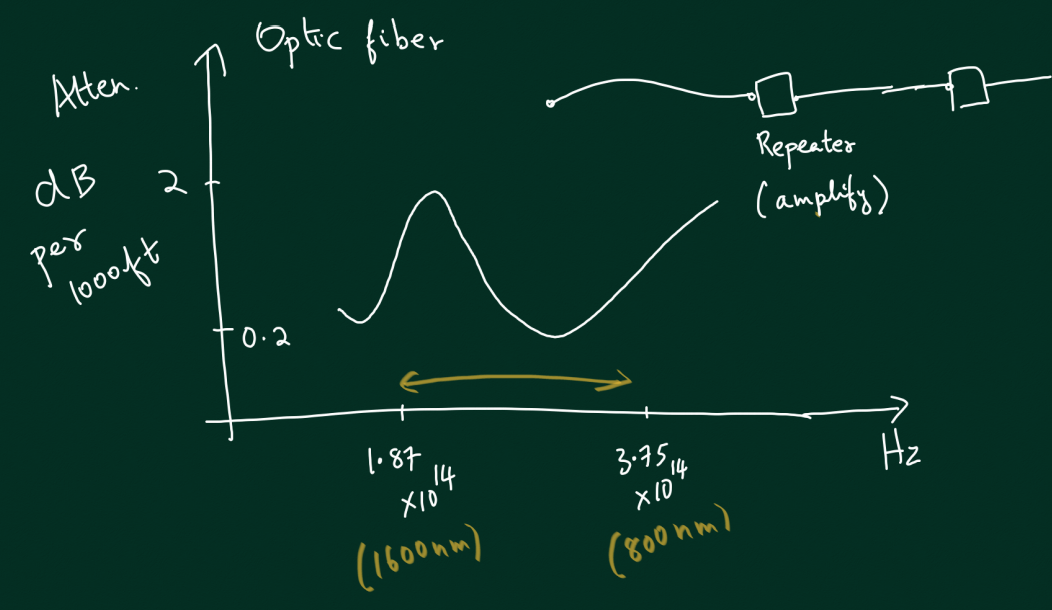 Optic fiber
Atten.
dB
per
1000ft
2
0.2
Repeater
(amplify)
1.87
×10^14
(1600nm)
3.75
×10^14
(800nm)
Hz